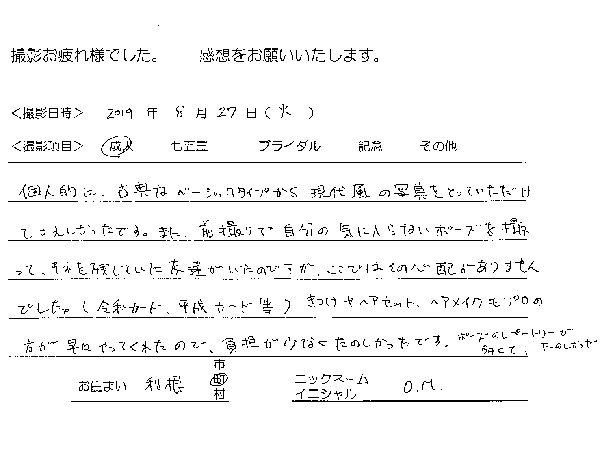 撮影お疲れ様でした。 感想をお願いいたします。
<撮影日時> 2019 年 8 月 27 日 (火)
<撮影項目> 成人 七五三 ブライダル 記念 その他
個人的に、古典なベーシックタイプから現代風の写真をとっていただけ
てうれしかったです。また、前撮りで自分の気に入らないポーズを撮
って、それを残していた友達がいたのですが、ここではその心配がありません
でした。(令和カード、平成カード等) きつけやヘアセット、ヘアメイクもプロの
方が早くやってくれたので、負担が少なくたのしかったです。ポーズのレパートリーが
多くて、たのしかった
お住まい 利根 市 町 村
ニックネーム イニシャル O.M.